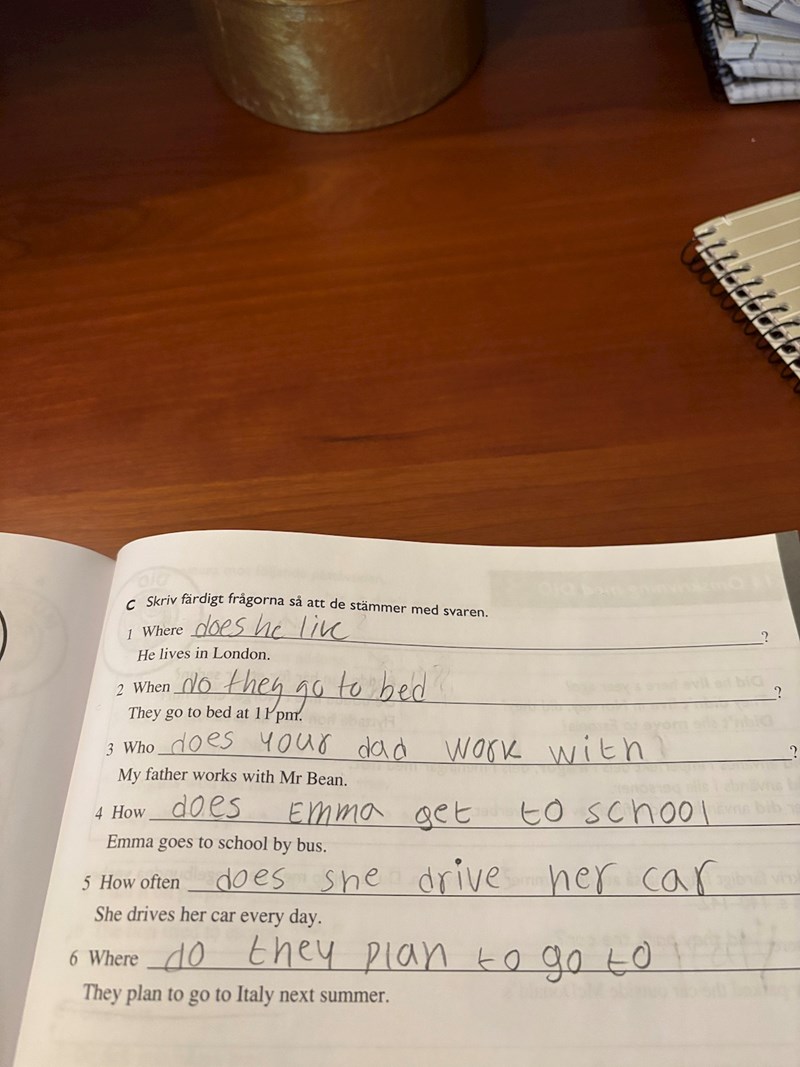 C Skriv färdigt frågorna så att de stämmer med svaren.
1 Where does he live ?
He lives in London.
2 When do they go to bed ?
They go to bed at 11 pm.
3 Who does your dad work with ?
My father works with Mr Bean.
4 How does Emma get to school
Emma goes to school by bus.
5 How often does she drive her car
She drives her car every day.
6 Where do they plan to go to
They plan to go to Italy next summer.